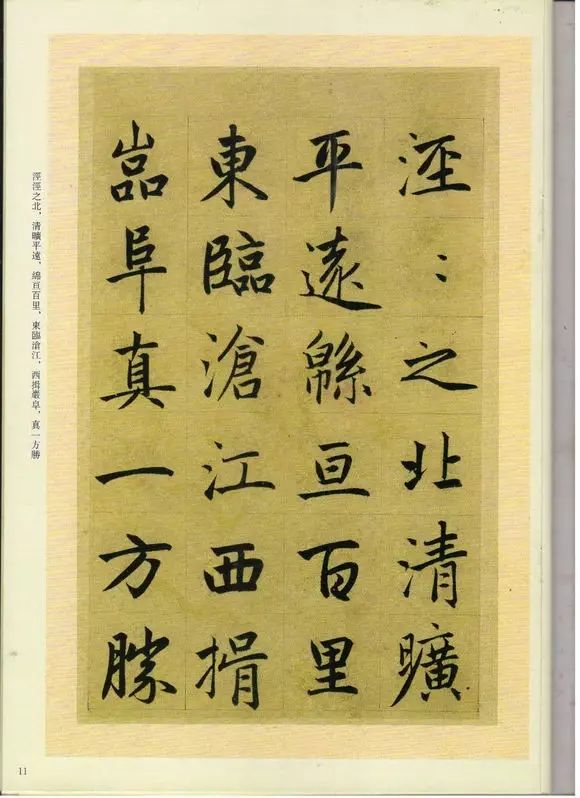 涇〻之北清曠
平遠緜亘百里
東臨滄江西揖
嵓阜真一方勝
涇涇之北，清曠平遠，綿亘百里，東臨滄江，西揖巖阜，真一方勝
11